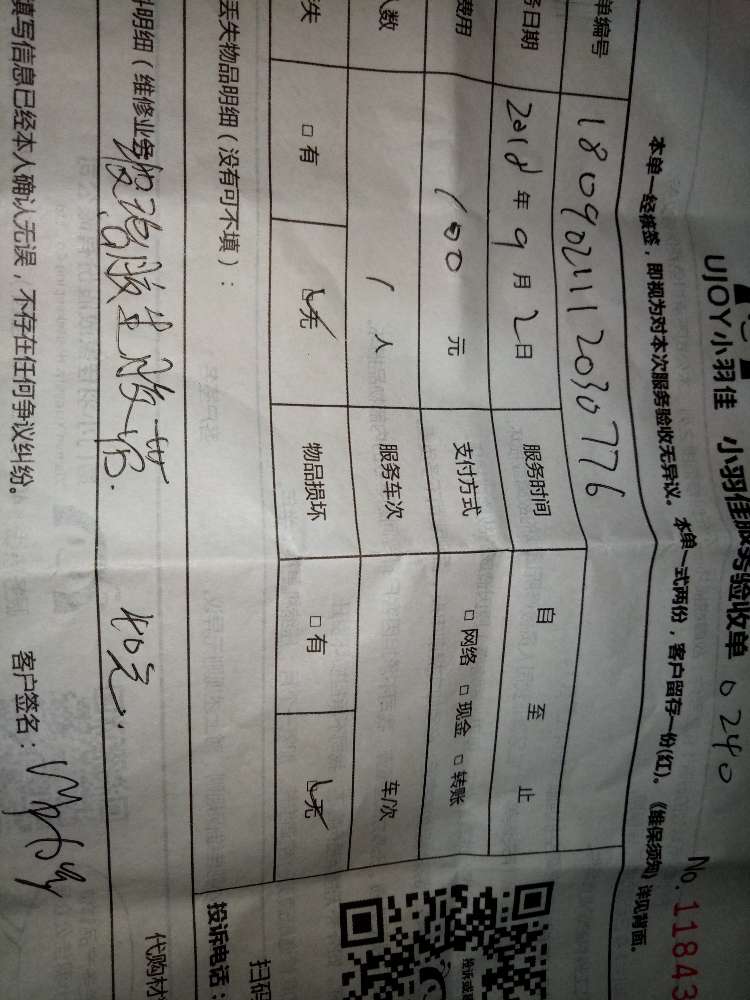 UJOY小羽佳 小羽佳服务验收单 0240
No.11843
本单一经核签，即视为对本次服务验收无异议。本单一式两份，客户留存一份(红)。《维保须知》详见背面。
单编号 1809021112030776
务日期 2018年9月2日 服务时间 自 至 止
费用 100元 支付方式 □网络 □现金 □转账
人数 1人 服务车次 车次
失 □有 ☑无 物品损坏 □有 ☑无
丢失物品明细（没有可不填）：
投诉电话：
扫码
料明细（维修业务 40元.
代购材
填写信息已经本人确认无误，不存在任何争议纠纷。 客户签名：